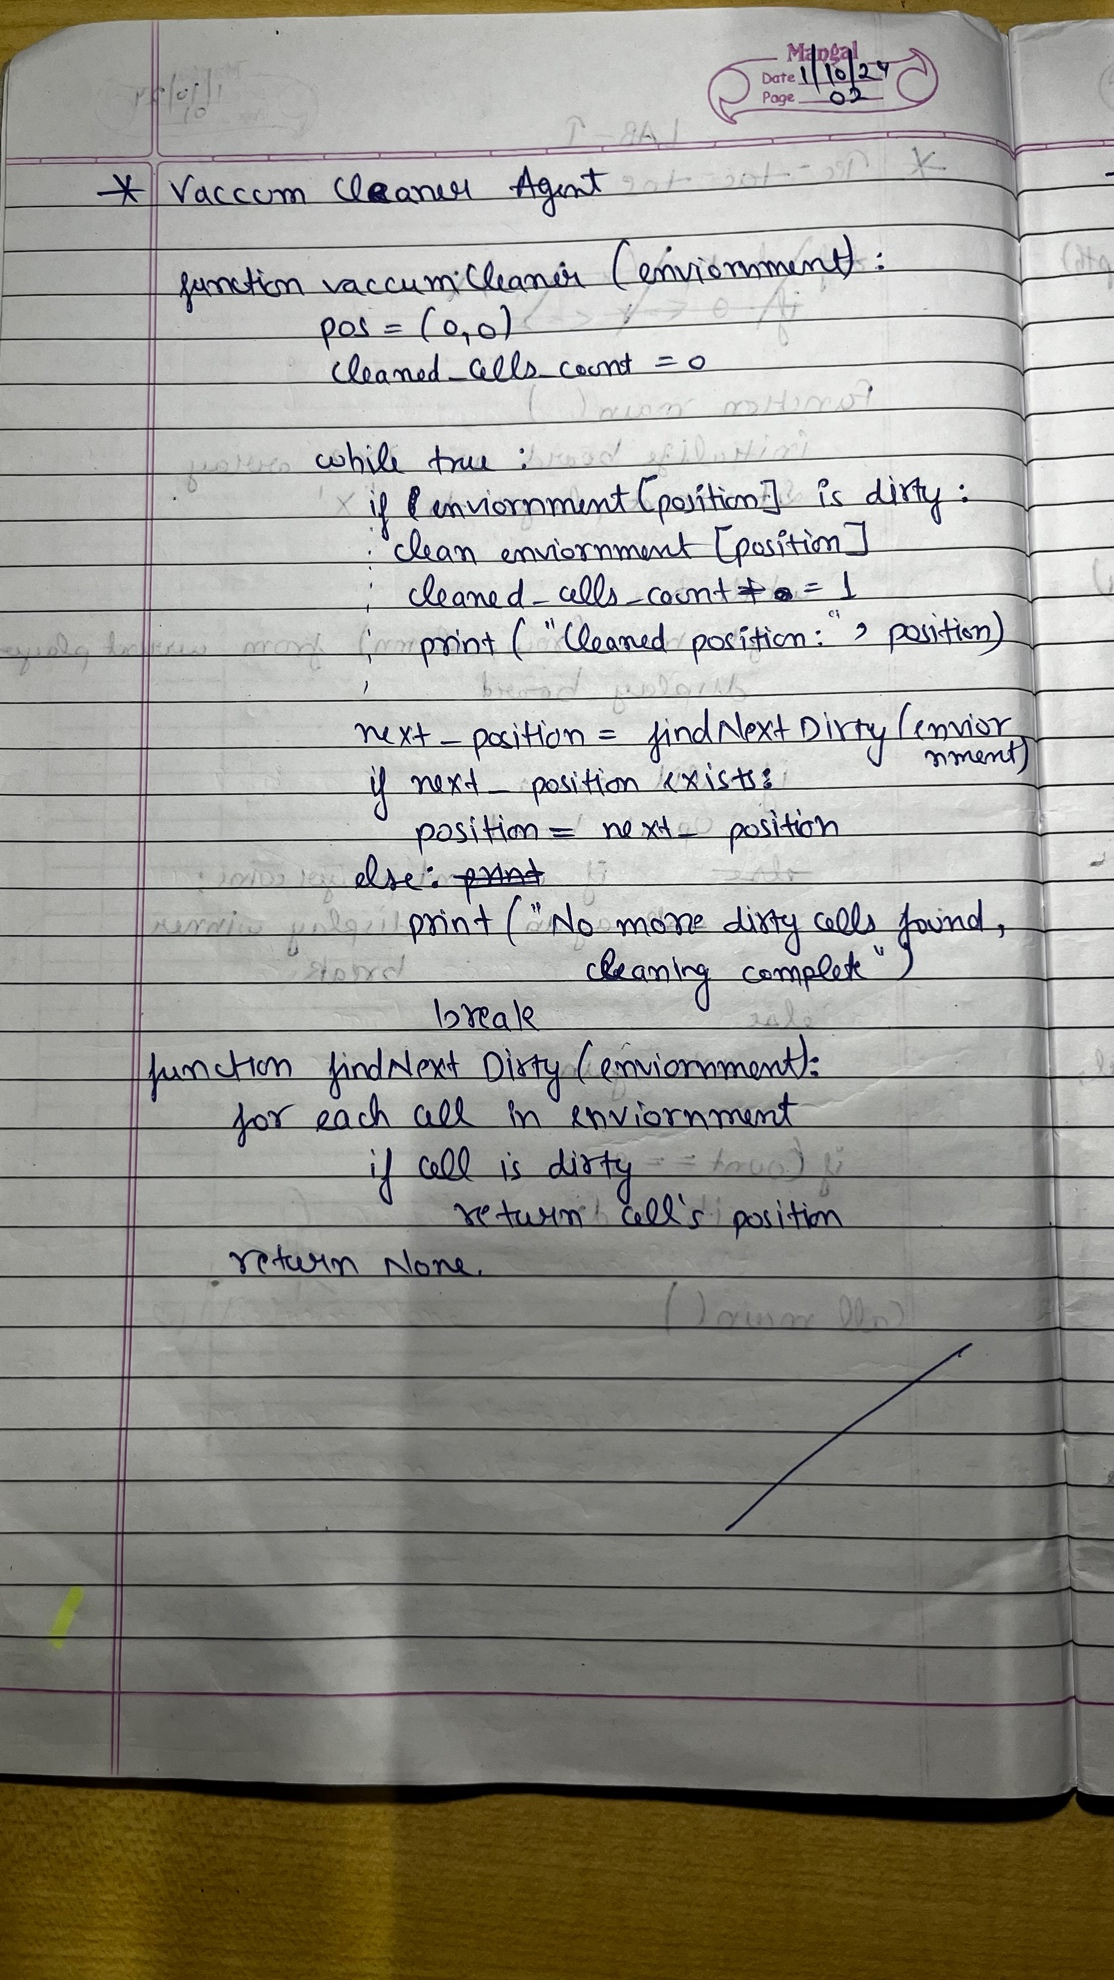 Mangal
Date 1/10/24
Page 02
* Vaccum Cleaner Agent
function vaccumCleaner (enviornment):
pos = (0,0)
cleaned_cells_count = 0
while true :
if enviornment [position] is dirty :
clean enviornment [position]
cleaned_cells_count += 1
print ("Cleaned position:", position)
next_position = findNextDirty (envior
nment)
if next_position exists:
position = next_position
else: print
print ("No more dirty cells found,
cleaning complete")
break
function findNextDirty (enviornment):
for each cell in enviornment
if cell is dirty
return cell's position
return None.